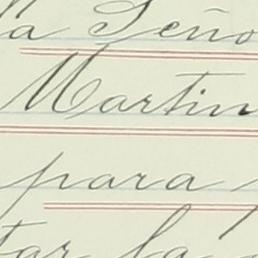 la Seño
Martin
para
tar la